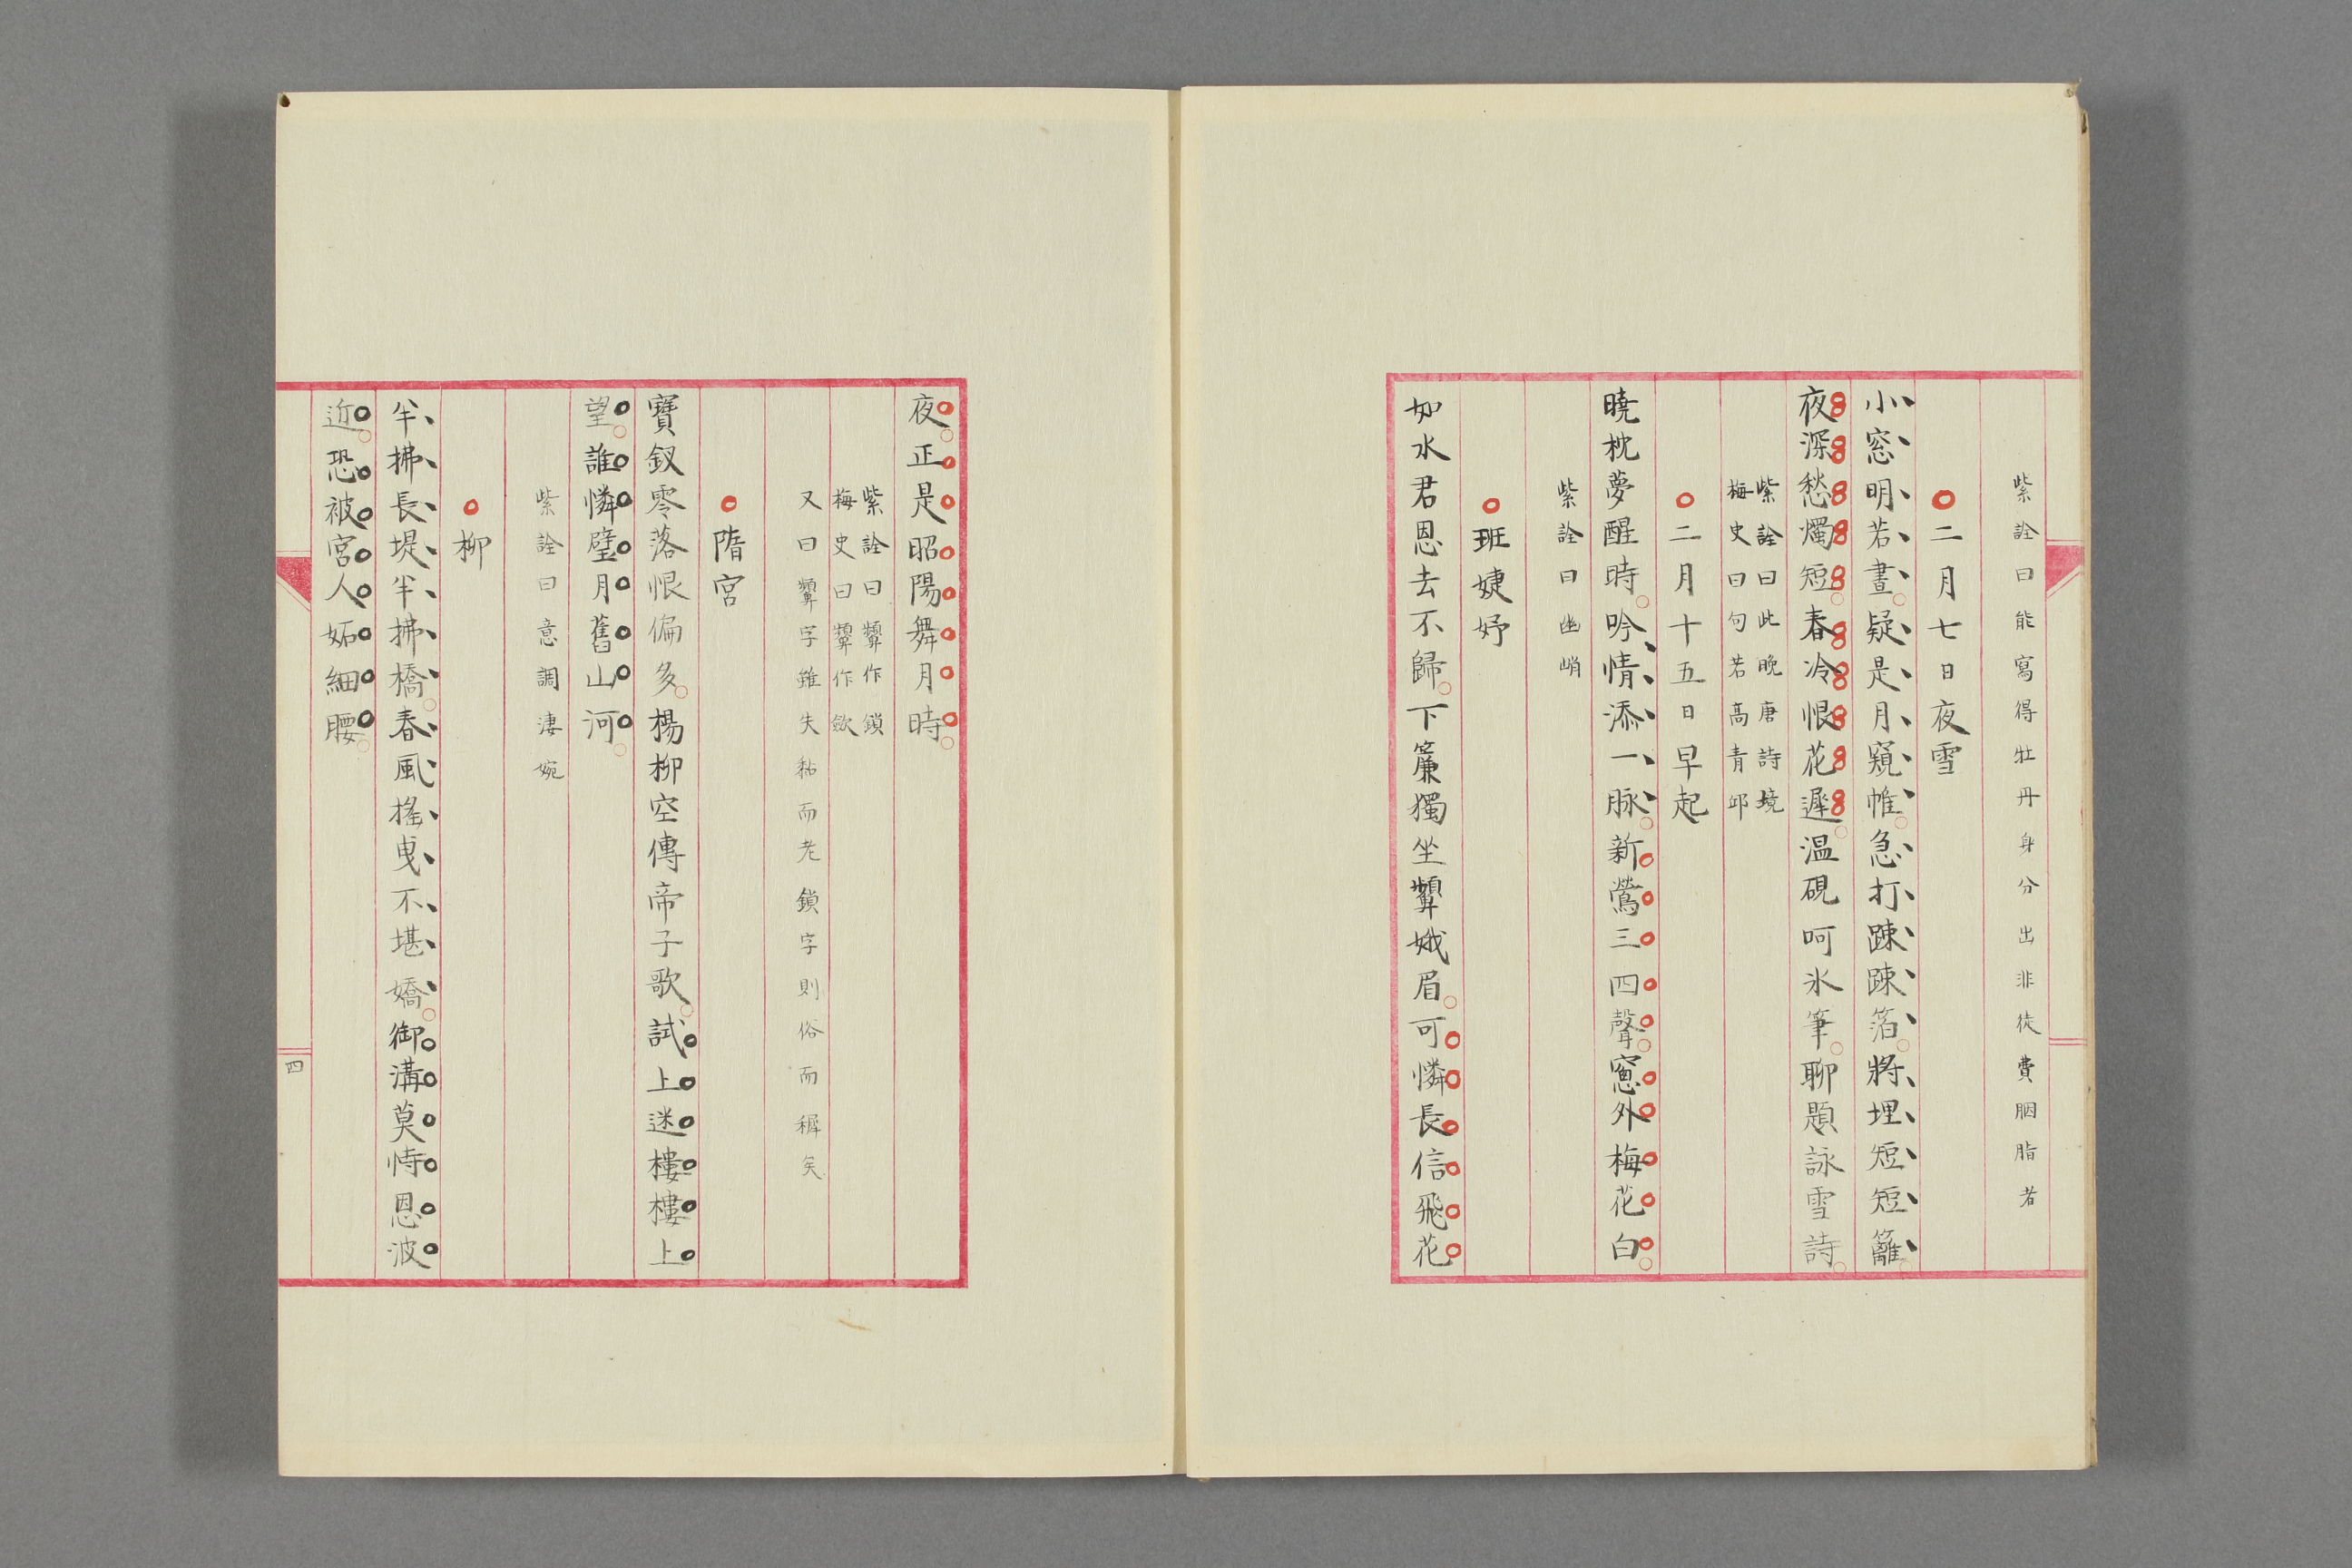 紫詮曰能寫得牡丹身分出非徒費胭脂若
二月七日夜雪
小窓明若晝疑是月窺帷急打踈踈箔將埋短短籬
夜深愁燭短春冷恨花遲温硯呵氷筆聊題詠雪詩
紫詮曰此晚唐詩境
梅史曰句若高青邱
二月十五日早起
曉枕夢醒時吟情添一脉新鶯三四聲窻外梅花白
紫詮曰幽峭
班婕妤
如水君恩去不歸下簾獨坐顰娥眉可憐長信飛花
夜正是昭陽舞月時
紫詮曰顰作鎖
梅史曰顰作斂
又曰顰字雖失黏而老鎖字則俗而穉矣
隋宮
寶釵零落恨偏多楊柳空傳帝子歌試上迷樓樓上
望誰憐璧月舊山河
紫詮曰意調淒婉
柳
半拂長堤半拂橋春風搖曳不堪嬌御溝莫恃恩波
近恐被宮人妬細腰
四